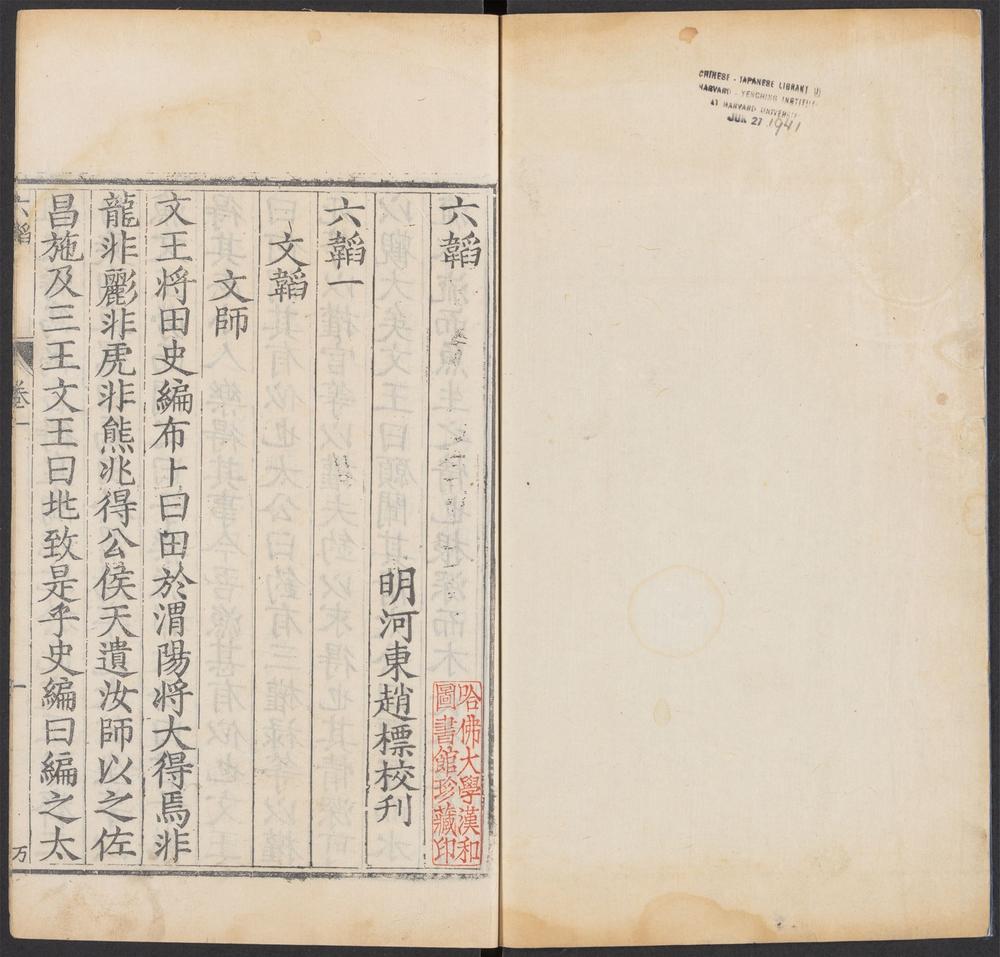 CHINESE - JAPANESE LIBRARY
HARVARD - YENCHING INSTITU
AT HARVARD UNIVERSI
JUN 27 1941
六韜
明河東趙標校刊
哈佛大學漢和
圖書館珍藏印
六韜一
文韜
文師
文王將田史編布卜曰田於渭陽將大得焉非
龍非彲非虎非熊兆得公侯天遺汝師以之佐
昌施及三王文王曰兆致是乎史編曰編之太
六韜
卷一
一
万